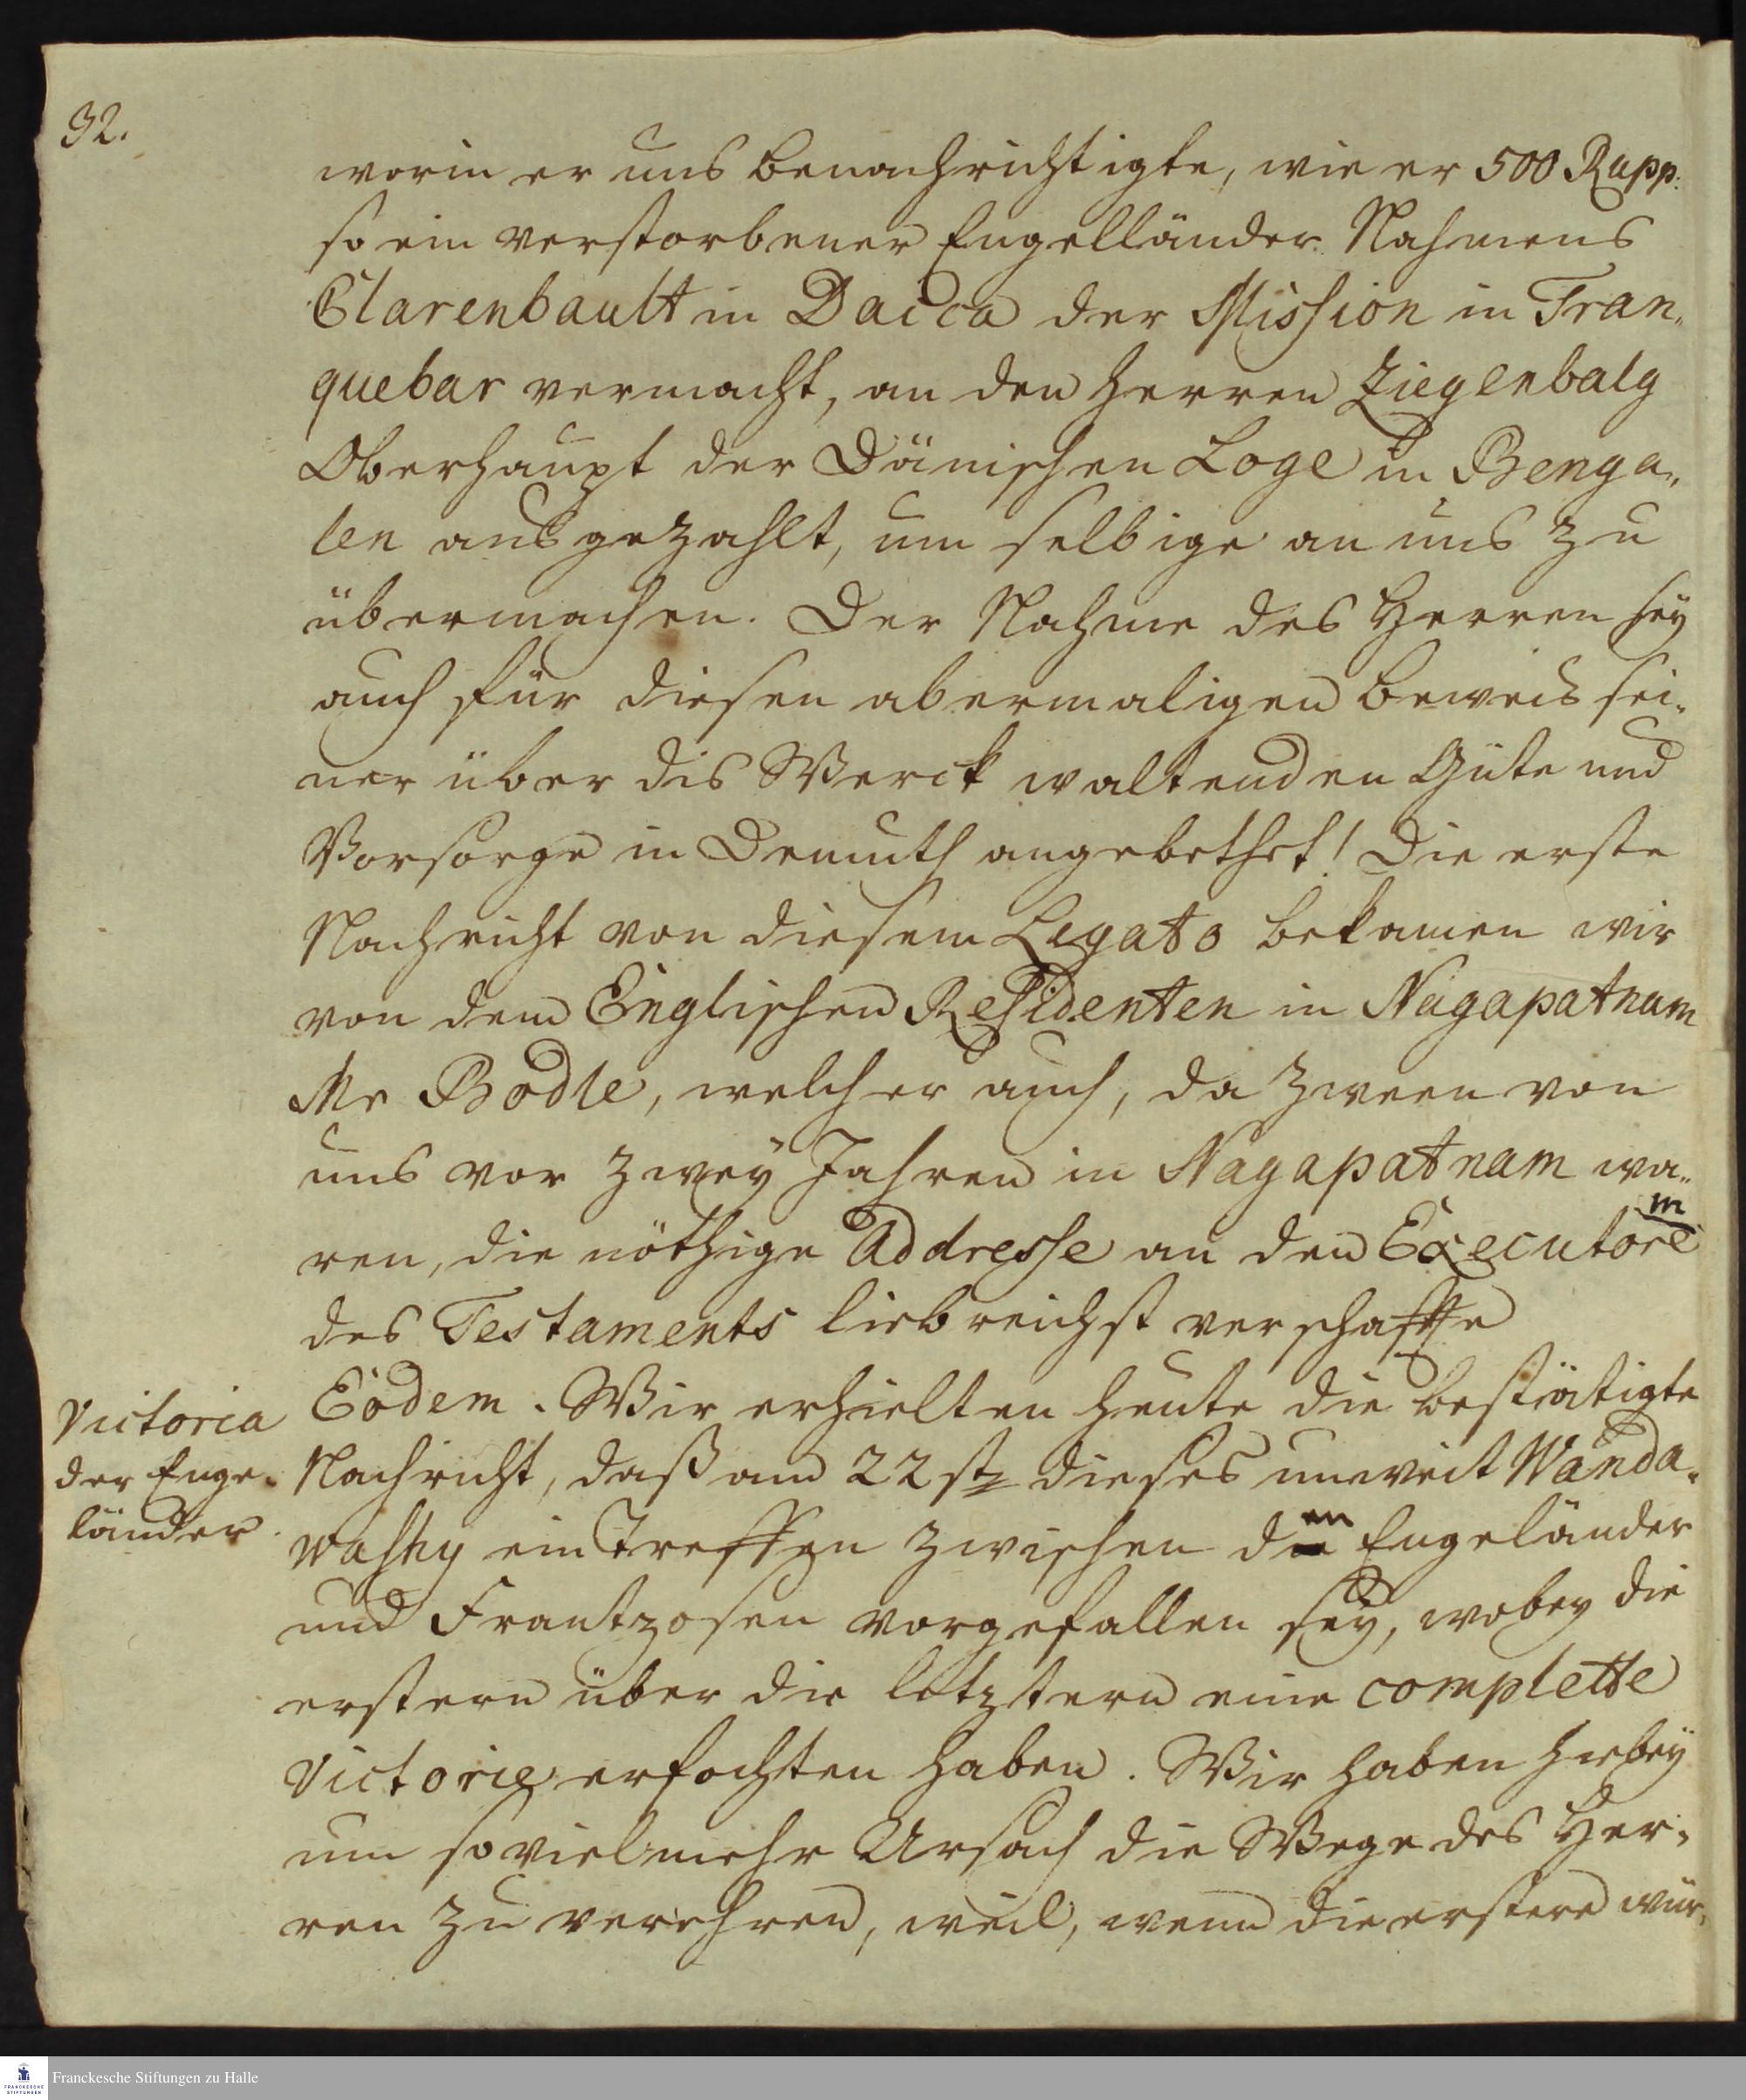 32.
worin er uns benachrichtigte, wie er 500 Rupp:
so ein verstorbener Engelländer Nahmens
Clarenbault in Dacca der Mission in Tran„
quebar vermacht, an den Herren Ziegenbalg
Oberhaupt der Dänischen Loge in Benga„
len ausgezahlt, um selbige an uns zu
übermachen. Der Nahme des Herren sey
auch für diesen abermaligen Beweis sei„
ner über dis Werck waltenden Güte und
Vorsorge in Demuth angebethet! Die erste
Nachricht von diesem Legato bekamen wir
von dem Englischen Residenten in Nagapatnam
Mr Bodle, welcher auch, da zween von
uns vor zwey Jahren in Nagapatnam wa„
ren, die nöthige Addresse an den Executorem
des Testaments liebreichst verschaffte
Victoria
der Enge„
länder.
Eodem. Wir erhielten heute die bestätigte
Nachricht, daß am 22st dieses unweit Wanda„
washy ein Treffen zwischen den Engeländer
und Frantzosen vorgefallen sey, wobey die
erstern über die letztern eine complette
Victorie erfochten haben. Wir haben hiebey
um so viel mehr Ursach die Wege des Her„
ren zu verehren, weil, wenn die erstere wür„
Franckesche Stiftungen zu Halle
FRANCKESCHE
STIFTUNGEN